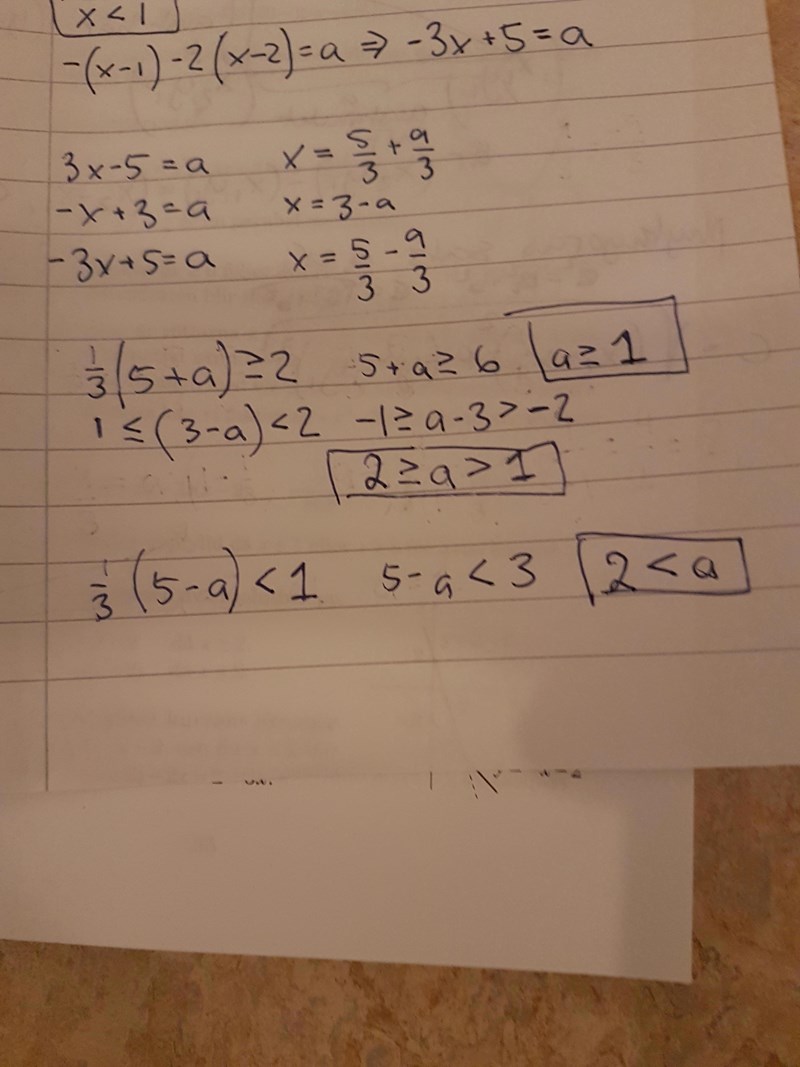 x < 1
-(x-1) -2(x-2) = a ⇒ -3x+5 = a
3x-5 = a x = 5/3 + a/3
-x+3 = a x = 3-a
-3x+5 = a x = 5/3 - a/3
1/3(5+a) ≥ 2 5+a ≥ 6 a ≥ 1
1 ≤ (3-a) < 2 -1 ≥ a-3 > -2
2 ≥ a > 1
1/3(5-a) < 1 5-a < 3 2 < a